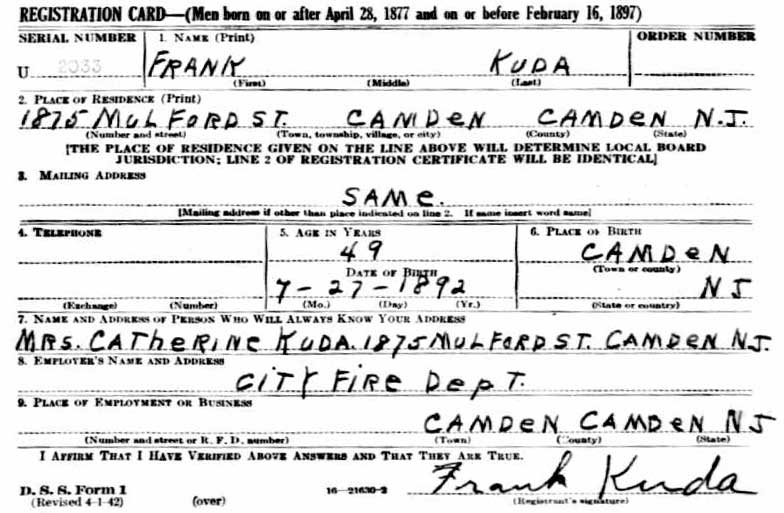 REGISTRATION CARD—(Men born on or after April 28, 1877 and on or before February 16, 1897)
SERIAL NUMBER 1. NAME (Print) ORDER NUMBER
U 2033 FRANK KUDA
(First) (Middle) (Last)
2. PLACE OF RESIDENCE (Print)
1875 MULFORD ST. CAMDEN CAMDEN N.J.
(Number and street) (Town, township, village, or city) (County) (State)
[THE PLACE OF RESIDENCE GIVEN ON THE LINE ABOVE WILL DETERMINE LOCAL BOARD
JURISDICTION; LINE 2 OF REGISTRATION CERTIFICATE WILL BE IDENTICAL]
3. MAILING ADDRESS
SAME.
[Mailing address if other than place indicated on line 2. If same insert word same]
4. TELEPHONE 5. AGE IN YEARS 6. PLACE OF BIRTH
49 CAMDEN
DATE OF BIRTH (Town or county)
7-27-1892 NJ
(Exchange) (Number) (Mo.) (Day) (Yr.) (State or country)
7. NAME AND ADDRESS OF PERSON WHO WILL ALWAYS KNOW YOUR ADDRESS
MRS. CATHERINE KUDA. 1875 MULFORD ST. CAMDEN NJ.
8. EMPLOYER'S NAME AND ADDRESS
CITY FIRE DEPT.
9. PLACE OF EMPLOYMENT OR BUSINESS
CAMDEN CAMDEN NJ
(Number and street or R. F. D. number) (Town) (County) (State)
I AFFIRM THAT I HAVE VERIFIED ABOVE ANSWERS AND THAT THEY ARE TRUE.
Frank Kuda
D. S. S. Form 1 16—21630-2 (Registrant's signature)
(Revised 4-1-42) (over)